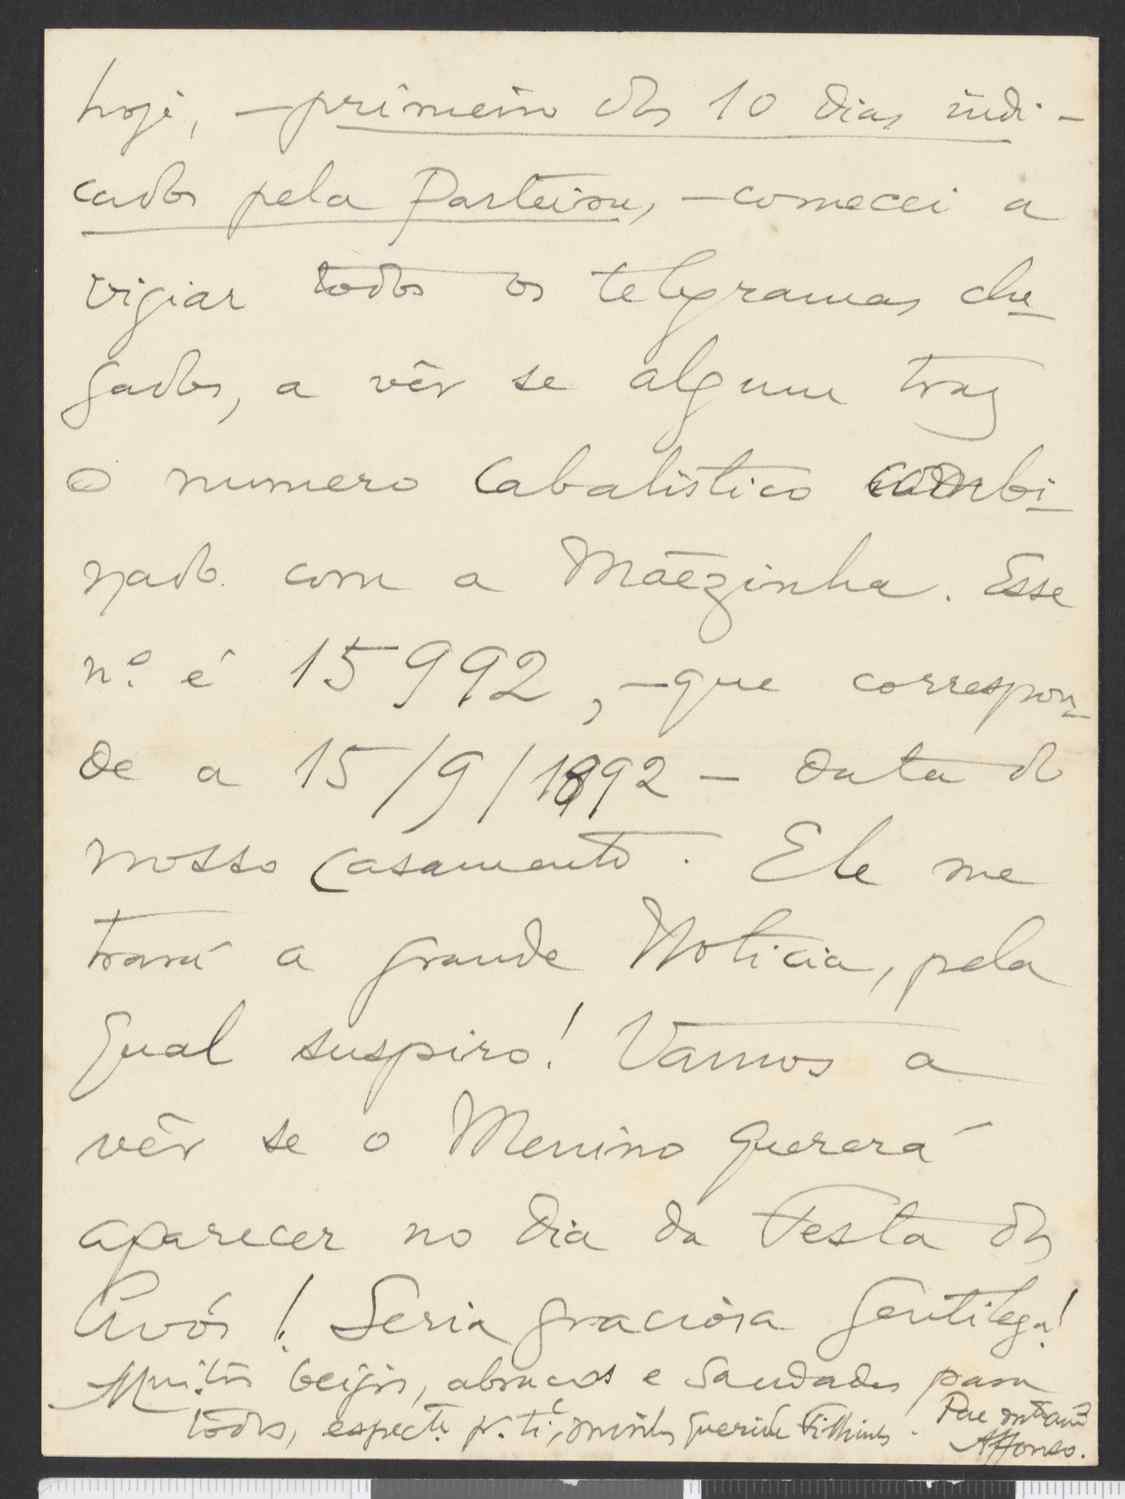 hoje, – primeiro dos 10 dias indi-
cados pela Parteira, – comecei a
vigiar todos os telegramas che-
gados, a vêr se algum traz
o numero cabalistico combi-
nado com a Mãezinha. Esse
nº é 15992, – que correspon-
de a 15/9/1892 – data do
nosso casamento. Ele me
trará a grande Noticia, pela
qual suspiro! Vamos a
vêr se o Menino quererá
aparecer no dia da Festa dos
Avós! Seria graciosa gentileza!
Muitos beijos, abraços e saudades para
todos, especte. pr. ti, minha querida Filhinha. Pae
Affonso.